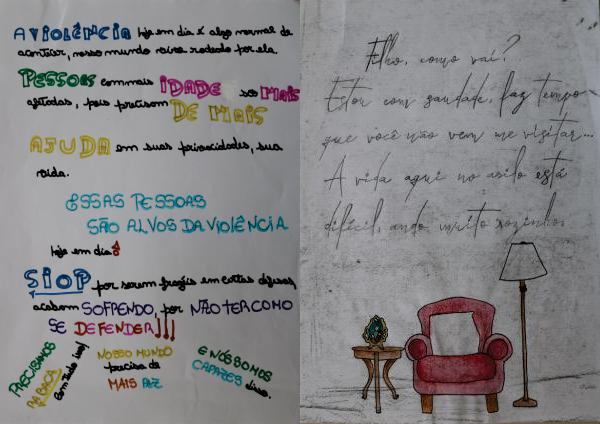 A VIOLÊNCIA hoje em dia é algo normal de
acontecer, nosso mundo vive rodeado por ela.
PESSOAS com mais IDADE são MAIS
afetadas, pois precisam DE MAIS
AJUDA em suas privacidades, sua
vida.
ESSAS PESSOAS
SÃO ALVOS DA VIOLÊNCIA
hoje em dia!
por serem frageis em certas
acabam SOFRENDO, por NÃO TER COMO
SE DEFENDER!!!
PRECISAMOS
com tudo isso!
NOSSO MUNDO
precisa de
MAIS PAZ
E NÓS SOMOS
CAPAZES disso.
Filho, como vai?
Estou com saudade, faz tempo
que você não vem me visitar...
A vida aqui no asilo está
difícil, ando muito sozinho.